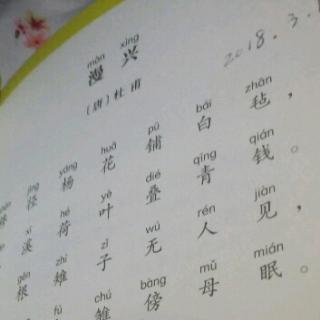 2018.3.
màn xìng
漫 兴
（唐）杜 甫
jìng yáng huā pū bái zhān
径 杨 花 铺 白 毡，
xī hé yè dié qīng qián
溪 荷 叶 叠 青 钱。
gēn zhì zǐ wú rén jiàn
根 雉 子 无 人 见，
fú chú bàng mǔ mián
雏 傍 母 眠。